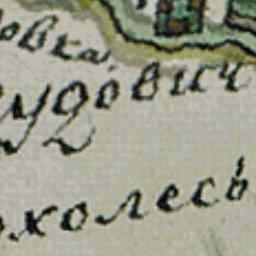 овка
удович
охолесъ